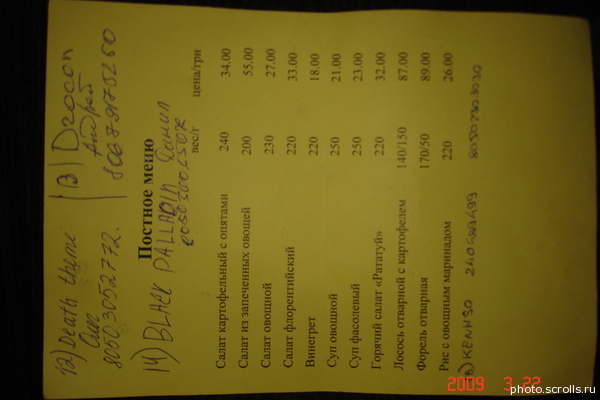 12) Death theme
13) Drocon
14) BLACK PALLADIN
Постное меню
вес/г цена/грн
Салат картофельный с опятами 240 34.00
Салат из запеченных овощей 200 55.00
Салат овощной 230 27.00
Салат флорентийский 220 33.00
Винегрет 220 18.00
Суп овощной 250 21.00
Суп фасолевый 250 23.00
Горячий салат «Рататуй» 220 32.00
Лосось отварной с картофелем 140/150 87.00
Форель отварная 170/50 89.00
Рис с овощным маринадом 220 26.00
KENHSO
2009 3.22
photo.scrolls.ru